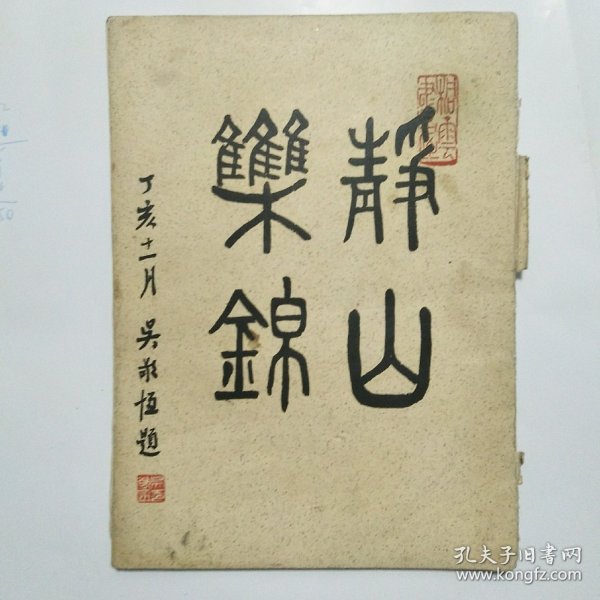 靜山
雧錦
丁亥十一月 吳敬恆題
孔夫子旧书网
www.kongfz.com